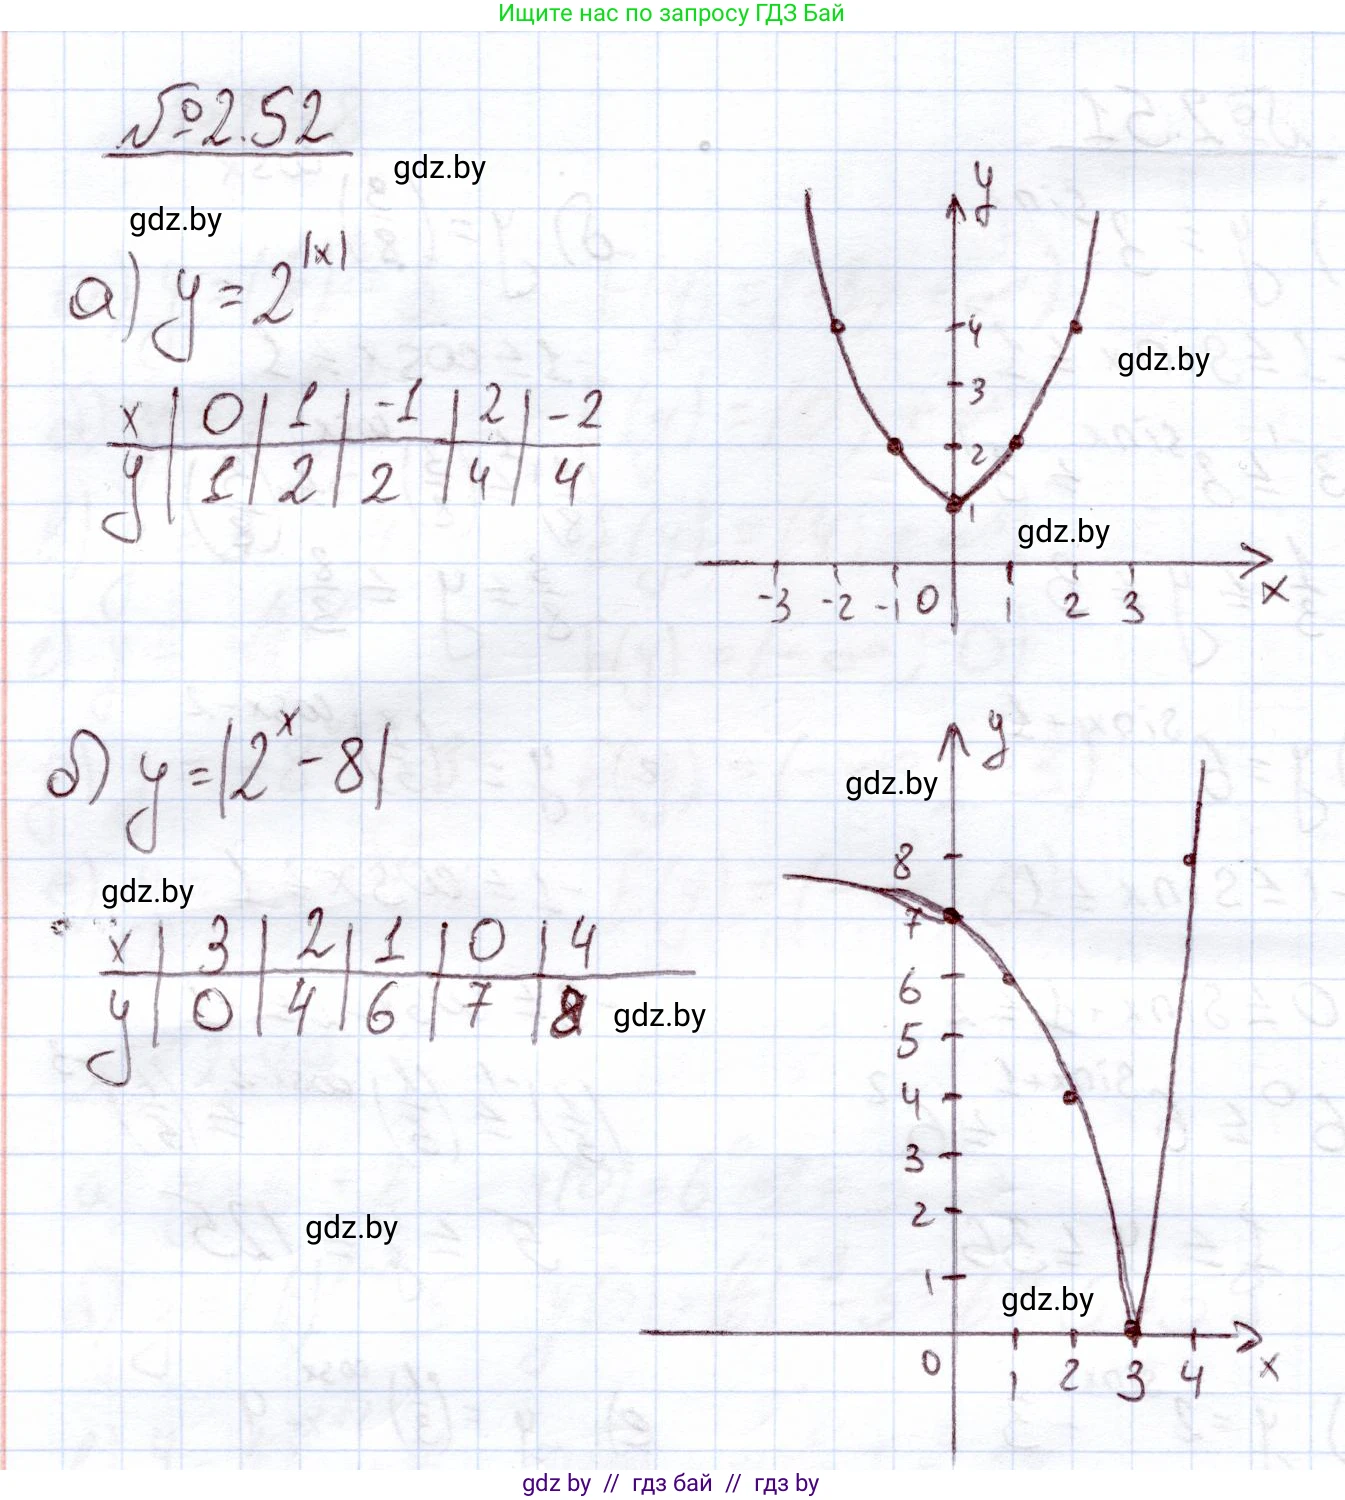 Ищите нас по запросу ГДЗ Бай
№2.52
gdz.by
gdz.by
а) y = 2^|x|
x | 0 | 1 | -1 | 2 | -2
y | 1 | 2 | 2 | 4 | 4
y
4
gdz.by
3
2
1
gdz.by
-3 -2 -1 0 1 2 3 x
б) y = |2^x - 8|
gdz.by
x | 3 | 2 | 1 | 0 | 4
y | 0 | 4 | 6 | 7 | 8
gdz.by
y
gdz.by
8
7
6
5
4
3
2
1
gdz.by
gdz.by
0 1 2 3 4 x
gdz by // гдз бай // гдз by